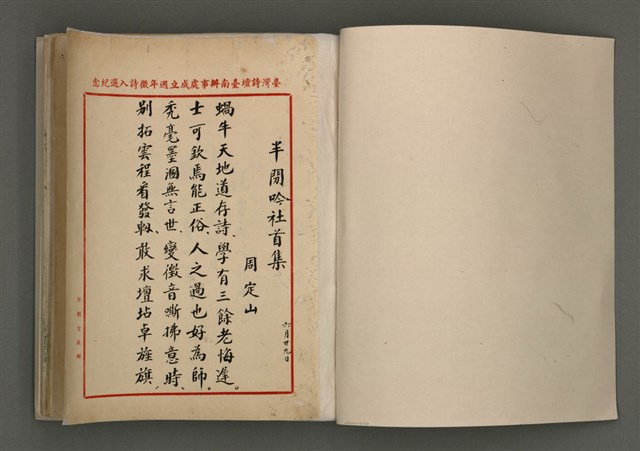 臺灣詩壇臺南辦事處成立週年徵詩入選紀念
半閒吟社首集
周定山
六月廿九日
蝸牛天地道存詩、學有三餘老悔遲。
士可欽焉能正俗、人之過也好為師。
禿毫墨涸無言世、變徵音嘶拂意時。
別拓雲程看發軔、敢求壇坫卓旌旗。